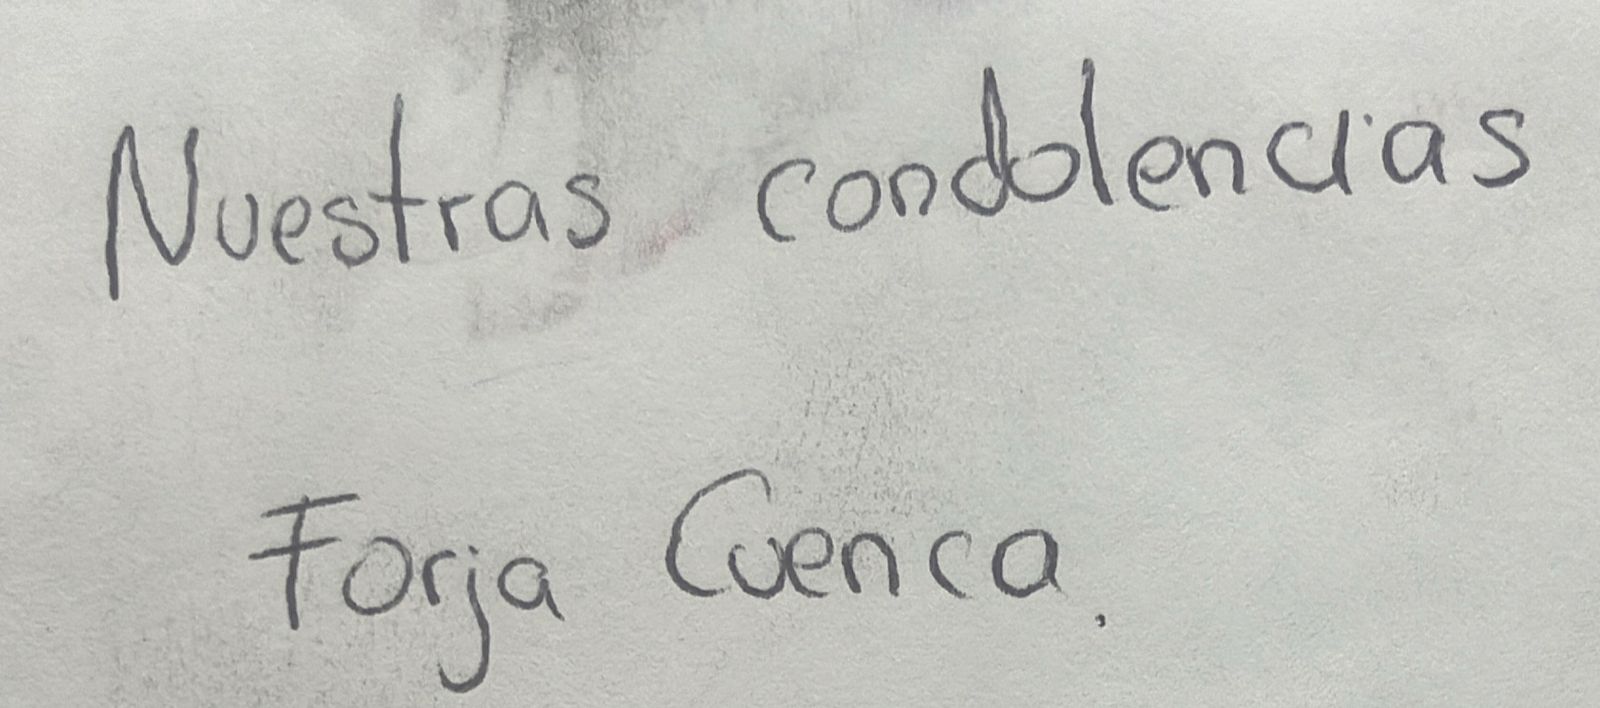 Nuestras condolencias
Forja Cuenca.